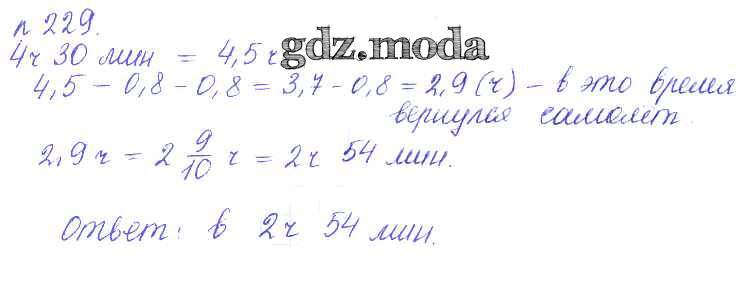 n 229.
4ч 30 мин = 4,5 ч gdz.moda
4,5 - 0,8 - 0,8 = 3,7 - 0,8 = 2,9 (ч) - в это время
вернулся самолет.
2,9 ч = 2 9/10 ч = 2ч 54 мин.
Ответ: в 2ч 54 мин.